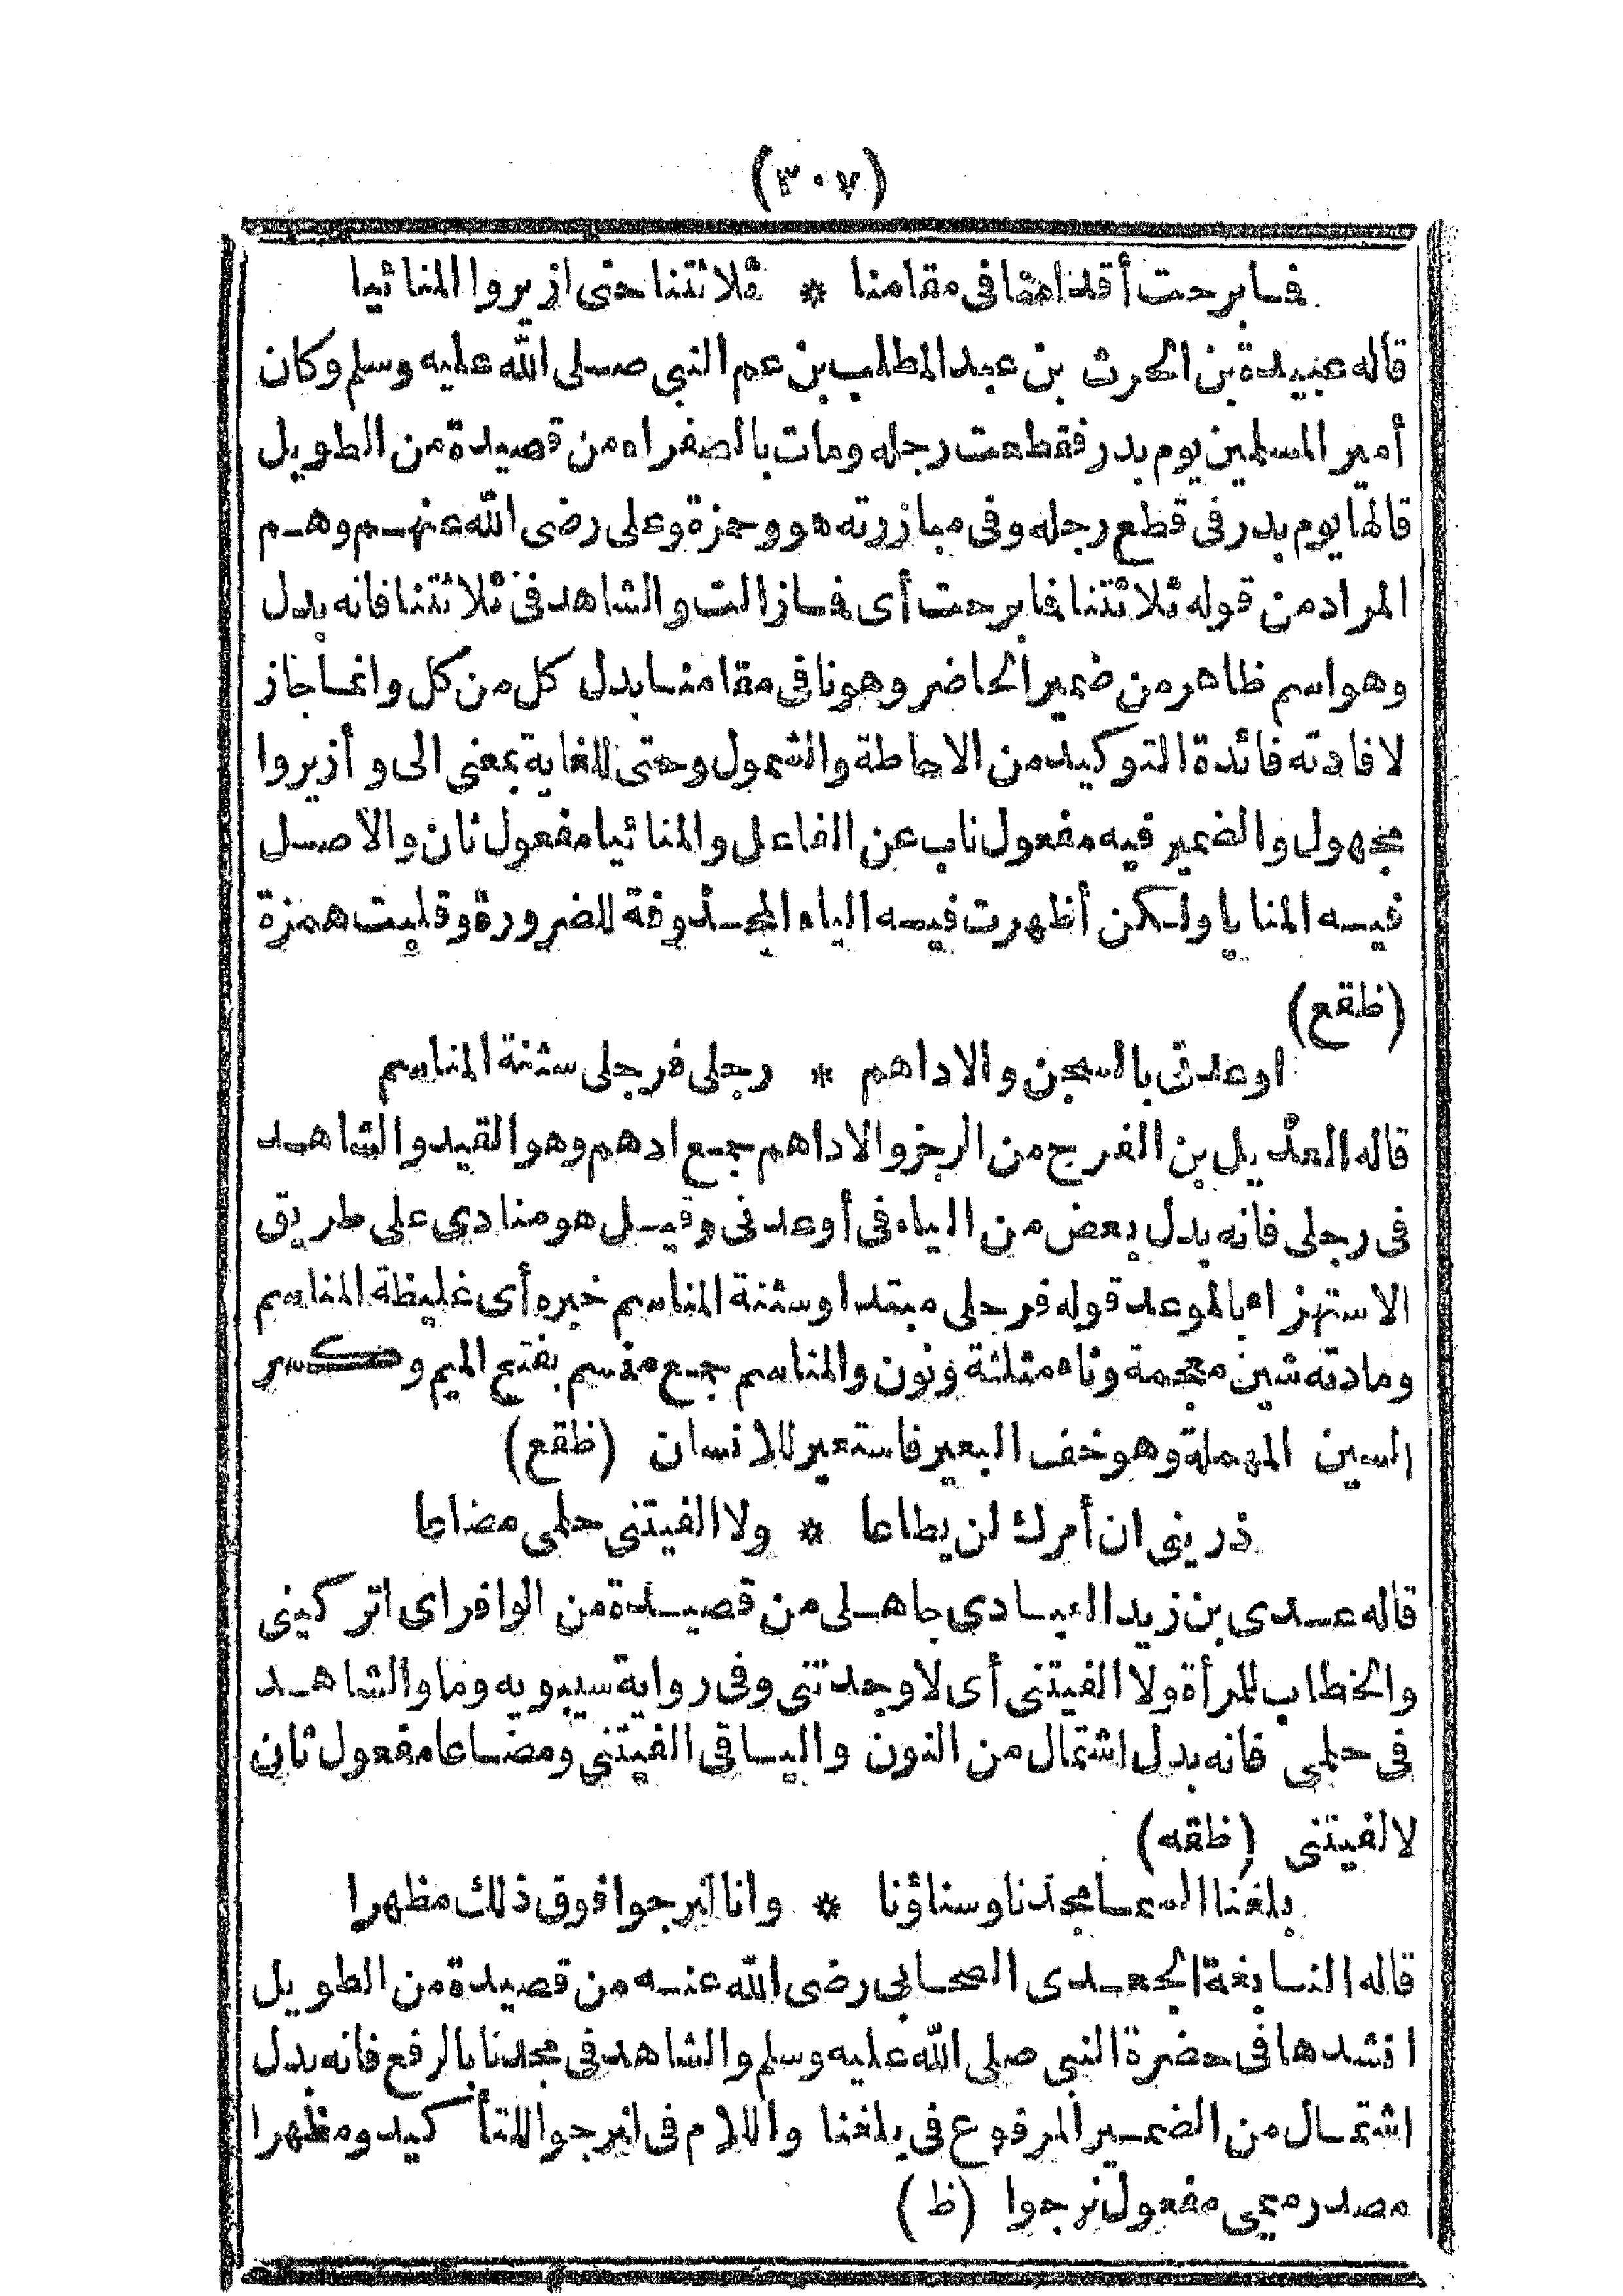 (٣٠٧)
فما برحت أقدامنا فى مقامنا * ثلاثتنا حتى ازيروا المنائيا
قاله عبيدة بن الحرث بن عبد المطلب بن عم النبى صلى الله عليه وسلم وكان
أمير المسلمين يوم بدر فقطعت رجله ومات بالصفراء من قصيدة من الطويل
قالها يوم بدر فى قطع رجله وفى مبازرته هو وحمزة وعلى رضى الله عنهم وهم
المراد من قوله ثلاثتنا فما برحت أى فما زالت والشاهد فى ثلاثتنا فانه بدل
وهو اسم ظاهر من ضمير الحاضر وهو نا فى مقامنا بدل كل من كل وانما جاز
لافادته فائدة التوكيد من الاحاطة والشمول وحتى للغاية بمعنى الى وأزيروا
مجهول والضمير فيه مفعول ناب عن الفاعل والمنائيا مفعول ثان والاصل
فيه المنايا ولكن أظهرت فيه الياء المحذوفة للضرورة وقلبت همزة
(ظقع)
اوعدنى بالسجن والاداهم * رجلى فرجلى شثنة المناسم
قاله العديل بن الفرج من الرجز والاداهم جمع ادهم وهو القيد والشاهد
فى رجلى فانه بدل بعض من الياء فى أوعدنى وقيل هو منادى على طريق
الاستهزاء بالموعد قوله فرجلى مبتدا وشثنة المناسم خبره أى غليظة المناسم
ومادته شين معجمة وثاء مثلثة ونون والمناسم جمع منسم بفتح الميم وكسر
السين المهملة وهو خف البعير فاستعير للانسان (ظقع)
ذرينى ان أمرك لن يطاعا * ولا الفيتنى حلمى مضاعا
قاله عدى بن زيد العبادى جاهلى من قصيدة من الوافر اى اتركينى
والخطاب للمرأة ولا الفيتنى أى لا وجدتنى وفى رواية سيبويه وما والشاهد
فى حلمى فانه بدل اشتمال من النون واليا فى الفيتنى ومضاعا مفعول ثان
لالفيتنى (ظقه)
بلغنا السما مجدنا وسناؤنا * وانا لنرجوا فوق ذلك مظهرا
قاله النابغة الجعدى الصحابى رضى الله عنه من قصيدة من الطويل
انشدها فى حضرة النبى صلى الله عليه وسلم والشاهد فى مجدنا بالرفع فانه بدل
اشتمال من الضمير المرفوع فى بلغنا واللام فى لنرجوا للتأكيد ومظهرا
مصدر ميمى مفعول نرجوا (ظ)